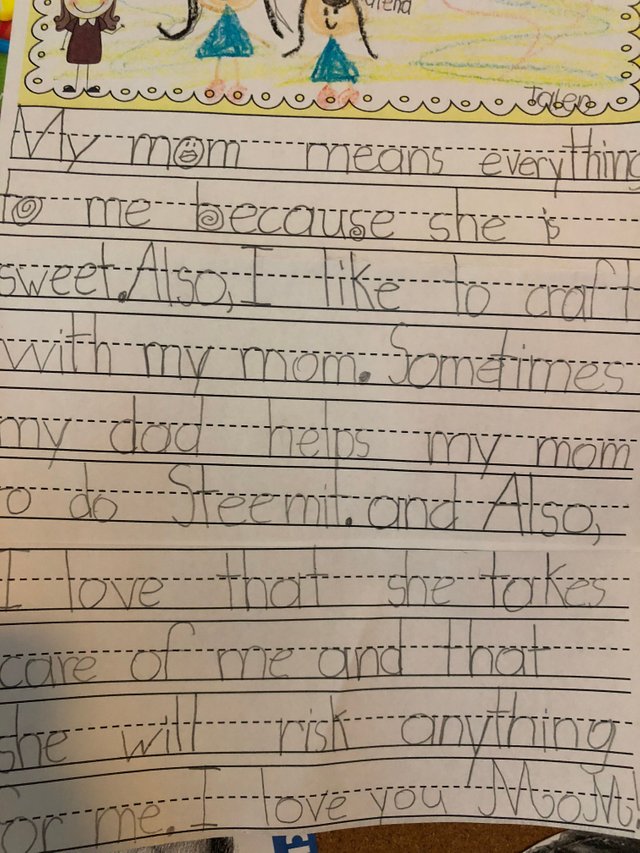 Jalen
My mom means everything
to me because she is
sweet. Also, I like to craft
with my mom. Sometimes
my dad helps my mom
to do Steemit. and Also,
I love that she takes
care of me and that
she will risk anything
for me. I love you MoM!